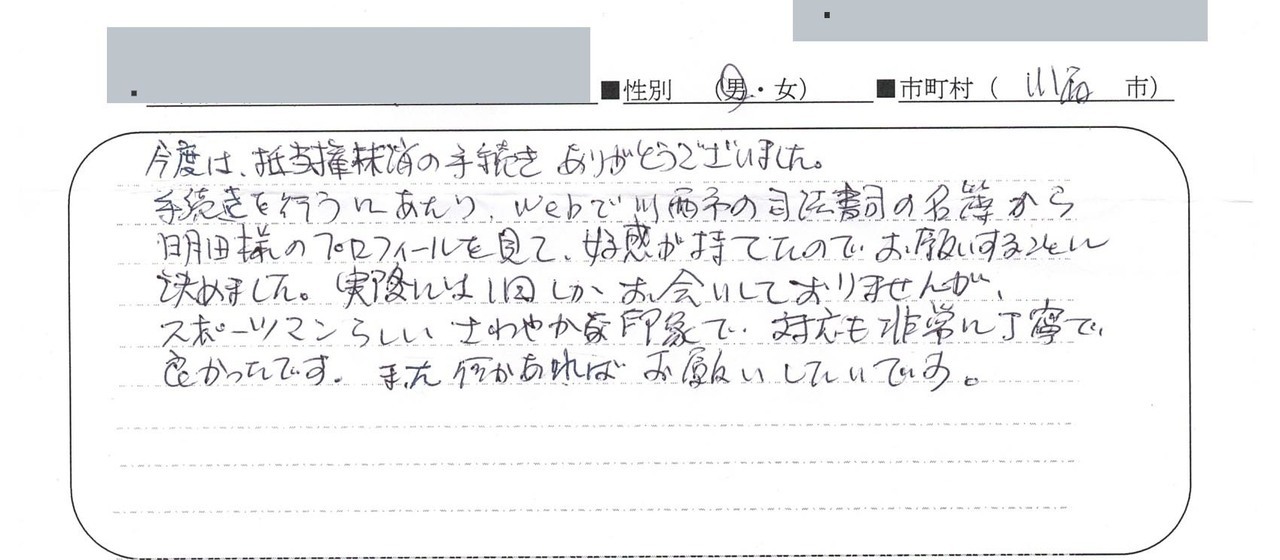 ■性別 (男・女) ■市町村( 川西 市)
今度は、抵当権抹消の手続きありがとうございました。
手続きを行うにあたり、Webで川西市の司法書司の名簿から
明田様のプロフィールを見て、好感が持てたのでお願いすることに
決めました。実際には1回しかお会いしておりませんが、
スポーツマンらしいさわやかな印象で、対応も非常に丁寧で、
良かったです。また何かあればお願いしたいです。